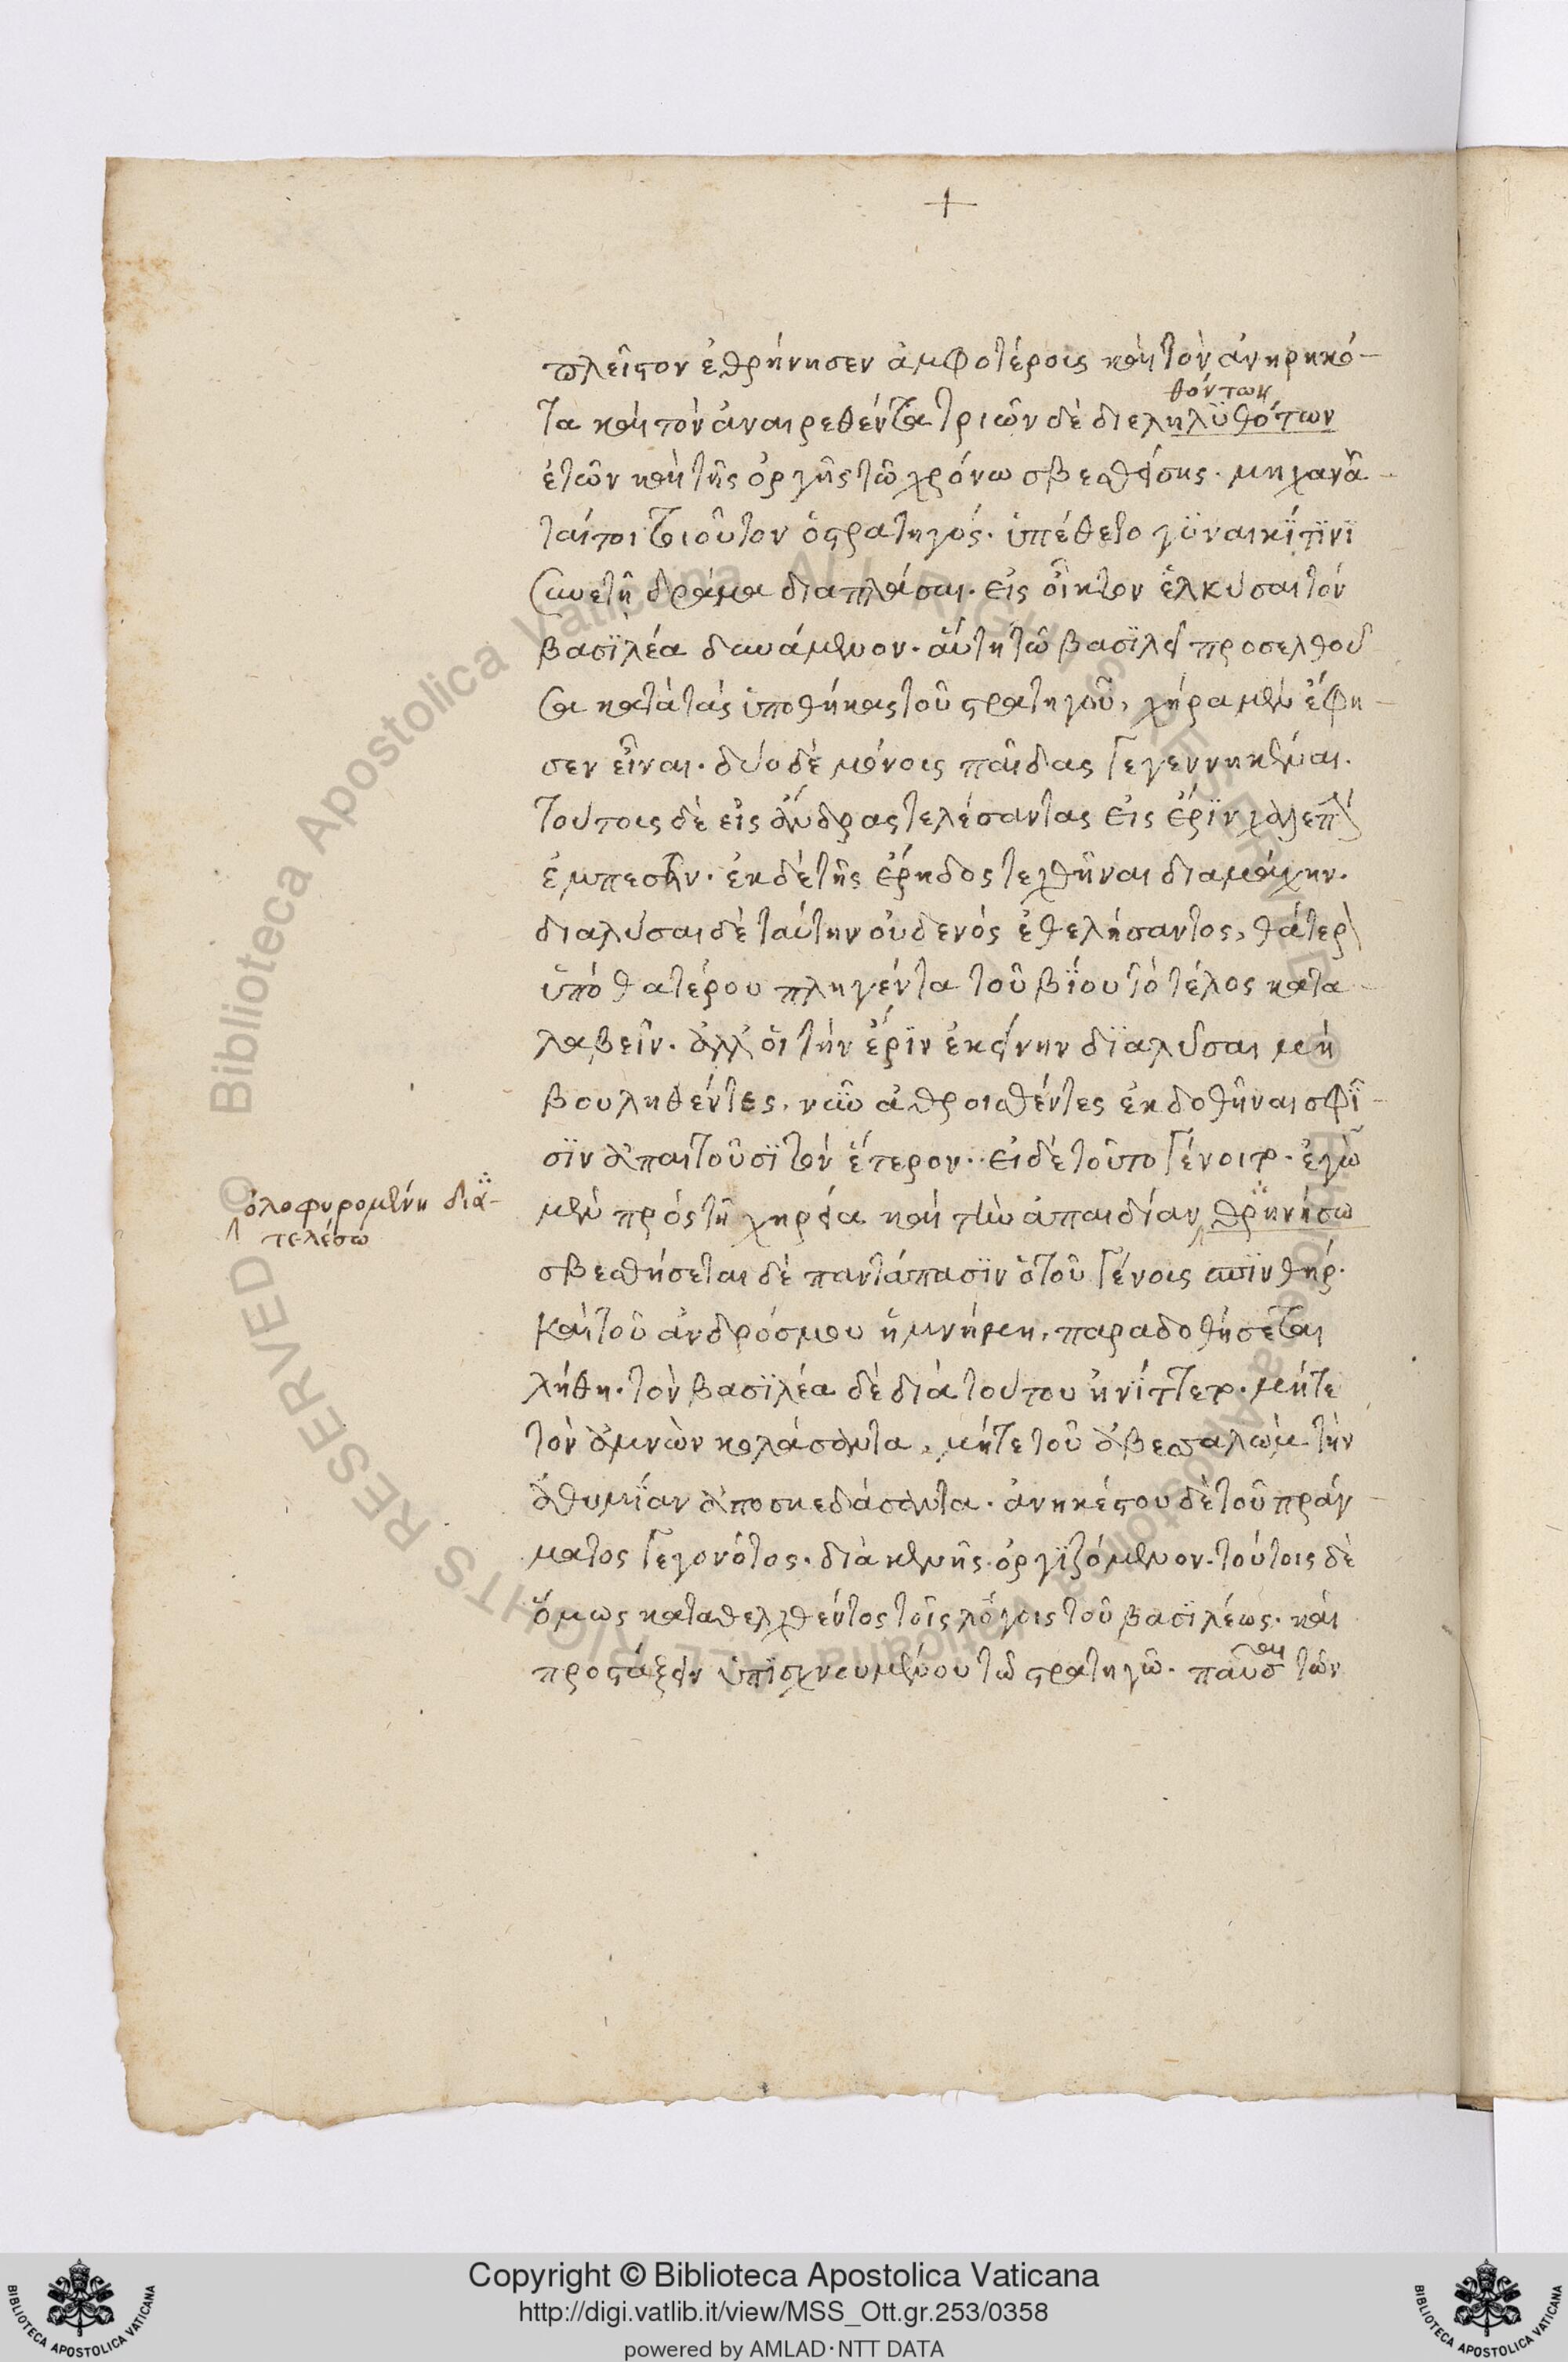 +
πλεῖστον ἐθρήνησεν ἀμφοτέροις καὶ τὸν ἀνηρηκό-
θόντων
τα καὶ τὸν ἀναιρεθέντα τριῶν δὲ διεληλϋθότων
ἐτῶν καὶ τῆς ὀργῆς τῶ χρόνω σβεσθείσης. μηχανᾶ-
ταί τοι τοιοῦτον ὁ στρατηγός. ὑπέθετο γϋναικΐ τϊνϊ
συνετῆ δρᾶμα διαπλάσαι. εἰς οἶκτον ἑλκύσαι τὸν
βασϊλέα δυνάμενον. αὕτη τῶ βασϊλεῖ προσελθοῦ
σα κατὰ τὰς ὑποθήκας τοῦ στρατηγοῦ, χήρα μὲν ἔφη-
σεν εἶναι. δύο δὲ μόνοις παῖδας γεγεννηκέναι.
τούτοις δὲ εἰς ἄνδρας τελέσαντας εἰς ἔρϊν χαλεπὴν
ἐμπεσεῖν. ἐκ δὲ τῆς ἔρηδος τεχθῆναι διαμάχην.
διαλύσαι δὲ ταύτην οὐδενὸς ἐθελήσαντος, θάτερον
ὑπὸ θατέρου πληγέντα τοῦ βΐου τὸ τέλος κατα-
λαβεῖν. ἀλλ' οἱ τὴν ἔρϊν ἐκείνην δϊαλῦσαι μὴ
βουληθέντες. νῦν ἀθροισθέντες ἐκδοθῆναι σφΐ-
σϊν ἀπαιτοῦσϊ τὸν ἕτερον. εἰ δὲ τοῦτο γένοιτο. ἐγὼ
μὲν πρὸς τῆ χηρεία καὶ τὴν ἀπαιδίαν, θρηνήσω
ὀλοφυρομένη δια-
τελέσω
σβεσθήσεται δὲ παντάπασϊν ὁ τοῦ γένοις σπϊνθήρ.
Καὶ τοῦ ἀνδρός μου ἡ μνήμη, παραδοθήσεται
λήθη. τὸν βασϊλέα δὲ διὰ τούτου ἠνίττετο. μήτε
τὸν ἀμνὼν κολάσαντα, μήτε τοῦ ἀβεσσαλὼμ τὴν
ἀθυμΐαν ἀποσκεδάσαντα. ἀνηκέστου δὲ τοῦ πράγ-
ματος γεγονότος. διὰ κενῆς ὀργϊζόμενον. τούτοις δὲ
ὅμως καταθελχθέντος τοῖς λόγοις τοῦ βασϊλέως. καὶ
προστάξειν ὑπϊσχνουμένου τῶ στρατηγῶ. παῦσαι τῶν
Copyright © Biblioteca Apostolica Vaticana
http://digi.vatlib.it/view/MSS_Ott.gr.253/0358
powered by AMLAD·NTT DATA